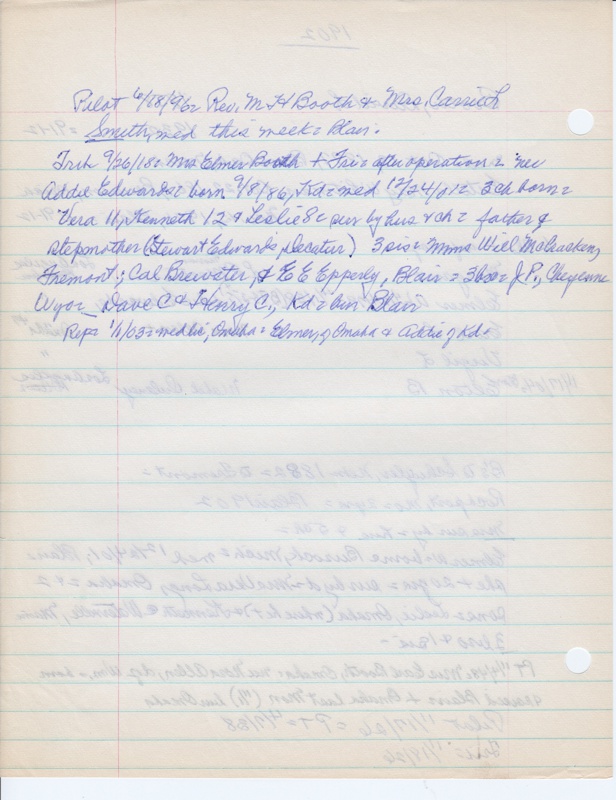 Pilot 6/18/96= Rev. M H Booth & Mrs. Carrie H
Smith, med this week= Blair.
Trib 9/26/18= Mrs Elmer Booth + Fri= after operation= nee
Addie Edwards= born 9/8/86, Kd= med 12/24/01= 3 ch born=
Vera 11, Kenneth 12 & Leslie 8= sur by hus & ch= father &
stepmother (Stewart Edwards, Decatur) 3 sis= Mmes Will McCracken,
Fremont; Cal Brewster, & E E Epperly, Blair= 3 bro= J P., Cheyenne
Wyo= Dave C & Henry C., Kd= bur Blair
Rep= 1/1/03= med lic, Omaha= Elmer, of Omaha & Addie of Kd.